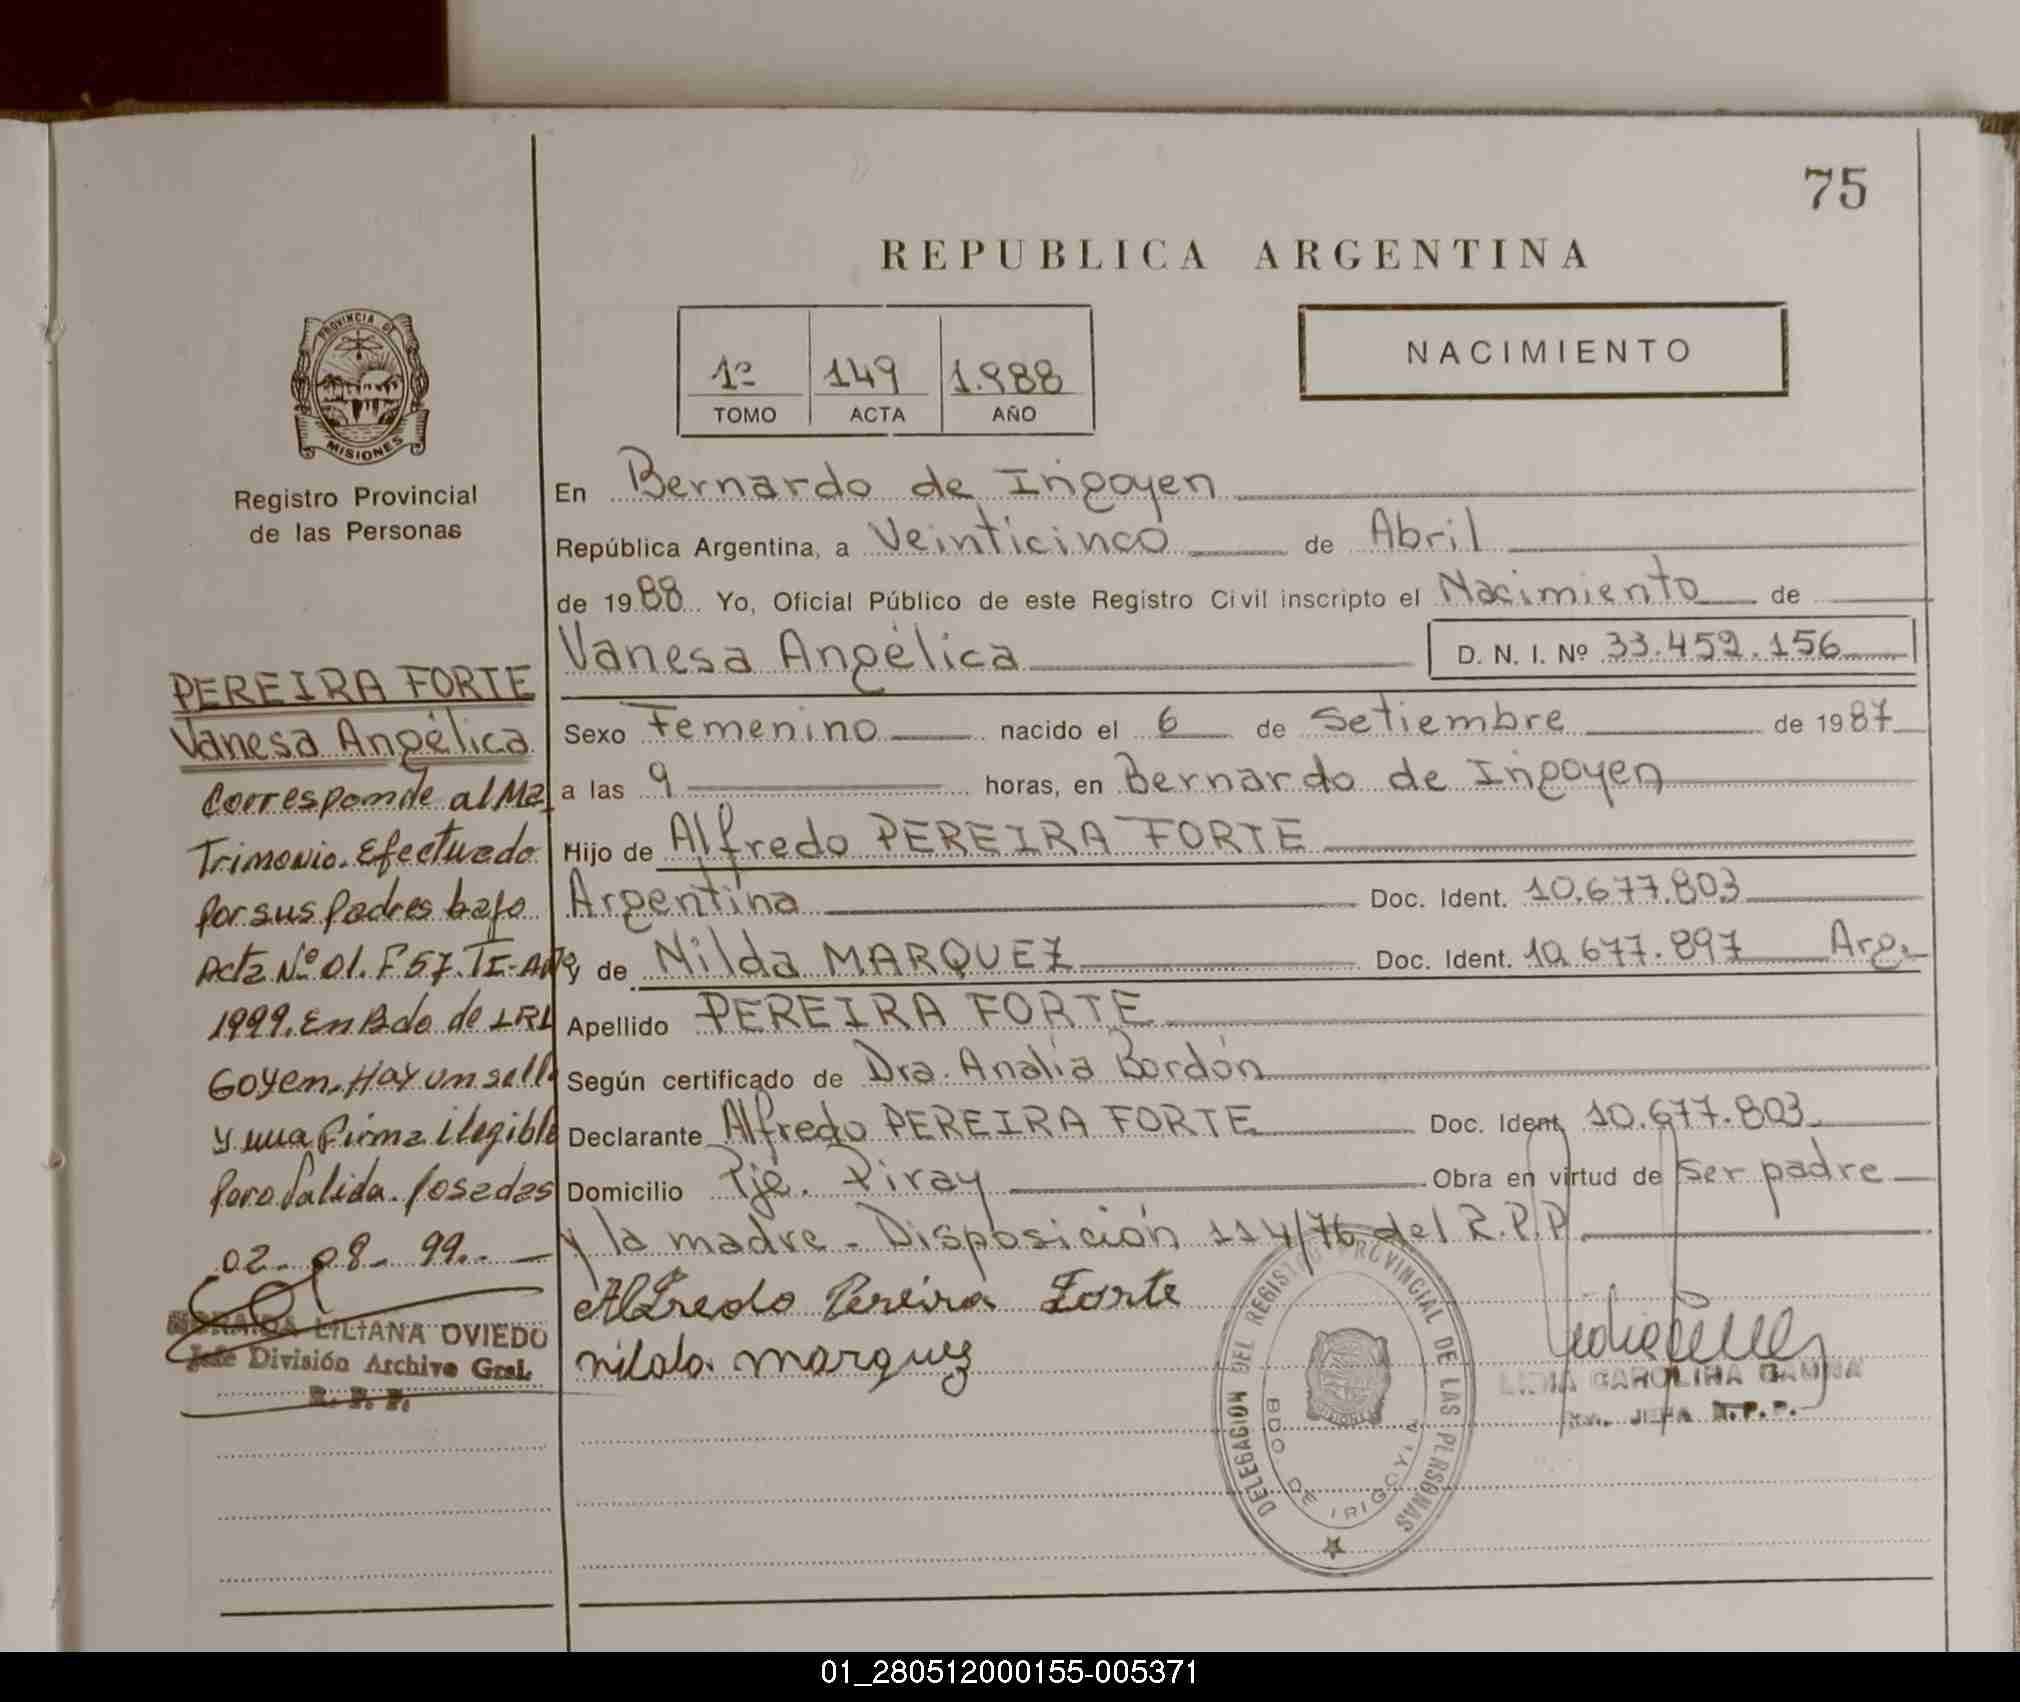 75
REPUBLICA ARGENTINA
PROVINCIA DE
MISIONES
1º 149 1.988
TOMO ACTA AÑO
NACIMIENTO
Registro Provincial
de las Personas
PEREIRA FORTE
Vanesa Angélica
Corresponde al Ma
trimonio. Efectuado
por sus padres bajo
Acta Nº 01. F 57. TI-Año
1999. En Bdo de IRI
Goyen. Hay un sello
y una firma ilegible
para Valida. Posadas
02-08-99.-
LILIANA OVIEDO
Jefe División Archivo Gral.
R. P. P.
En Bernardo de Irigoyen
República Argentina, a Veinticinco de Abril
de 1988 Yo, Oficial Público de este Registro Civil inscripto el Nacimiento de
Vanesa Angélica D. N. I. Nº 33.459.156
Sexo Femenino nacido el 6 de Setiembre de 1987
a las 9 horas, en Bernardo de Irigoyen
Hijo de Alfredo PEREIRA FORTE
Argentina Doc. Ident. 10.677.803
y de Nilda MARQUEZ Doc. Ident. 10.677.897 Arg.
Apellido PEREIRA FORTE
Según certificado de Dra. Analía Bordón
Declarante Alfredo PEREIRA FORTE Doc. Ident. 10.677.803
Domicilio Pje. Piray Obra en virtud de ser padre
y la madre - Disposición 114/76 del R.P.P.
Alfredo Pereira Forte
nilda marquez
DELEGACION DEL REGISTRO PROVINCIAL DE LAS PERSONAS
BDO DE IRIGOYEN
CAROLINA
JEFA R.P.P.
01_280512000155-005371